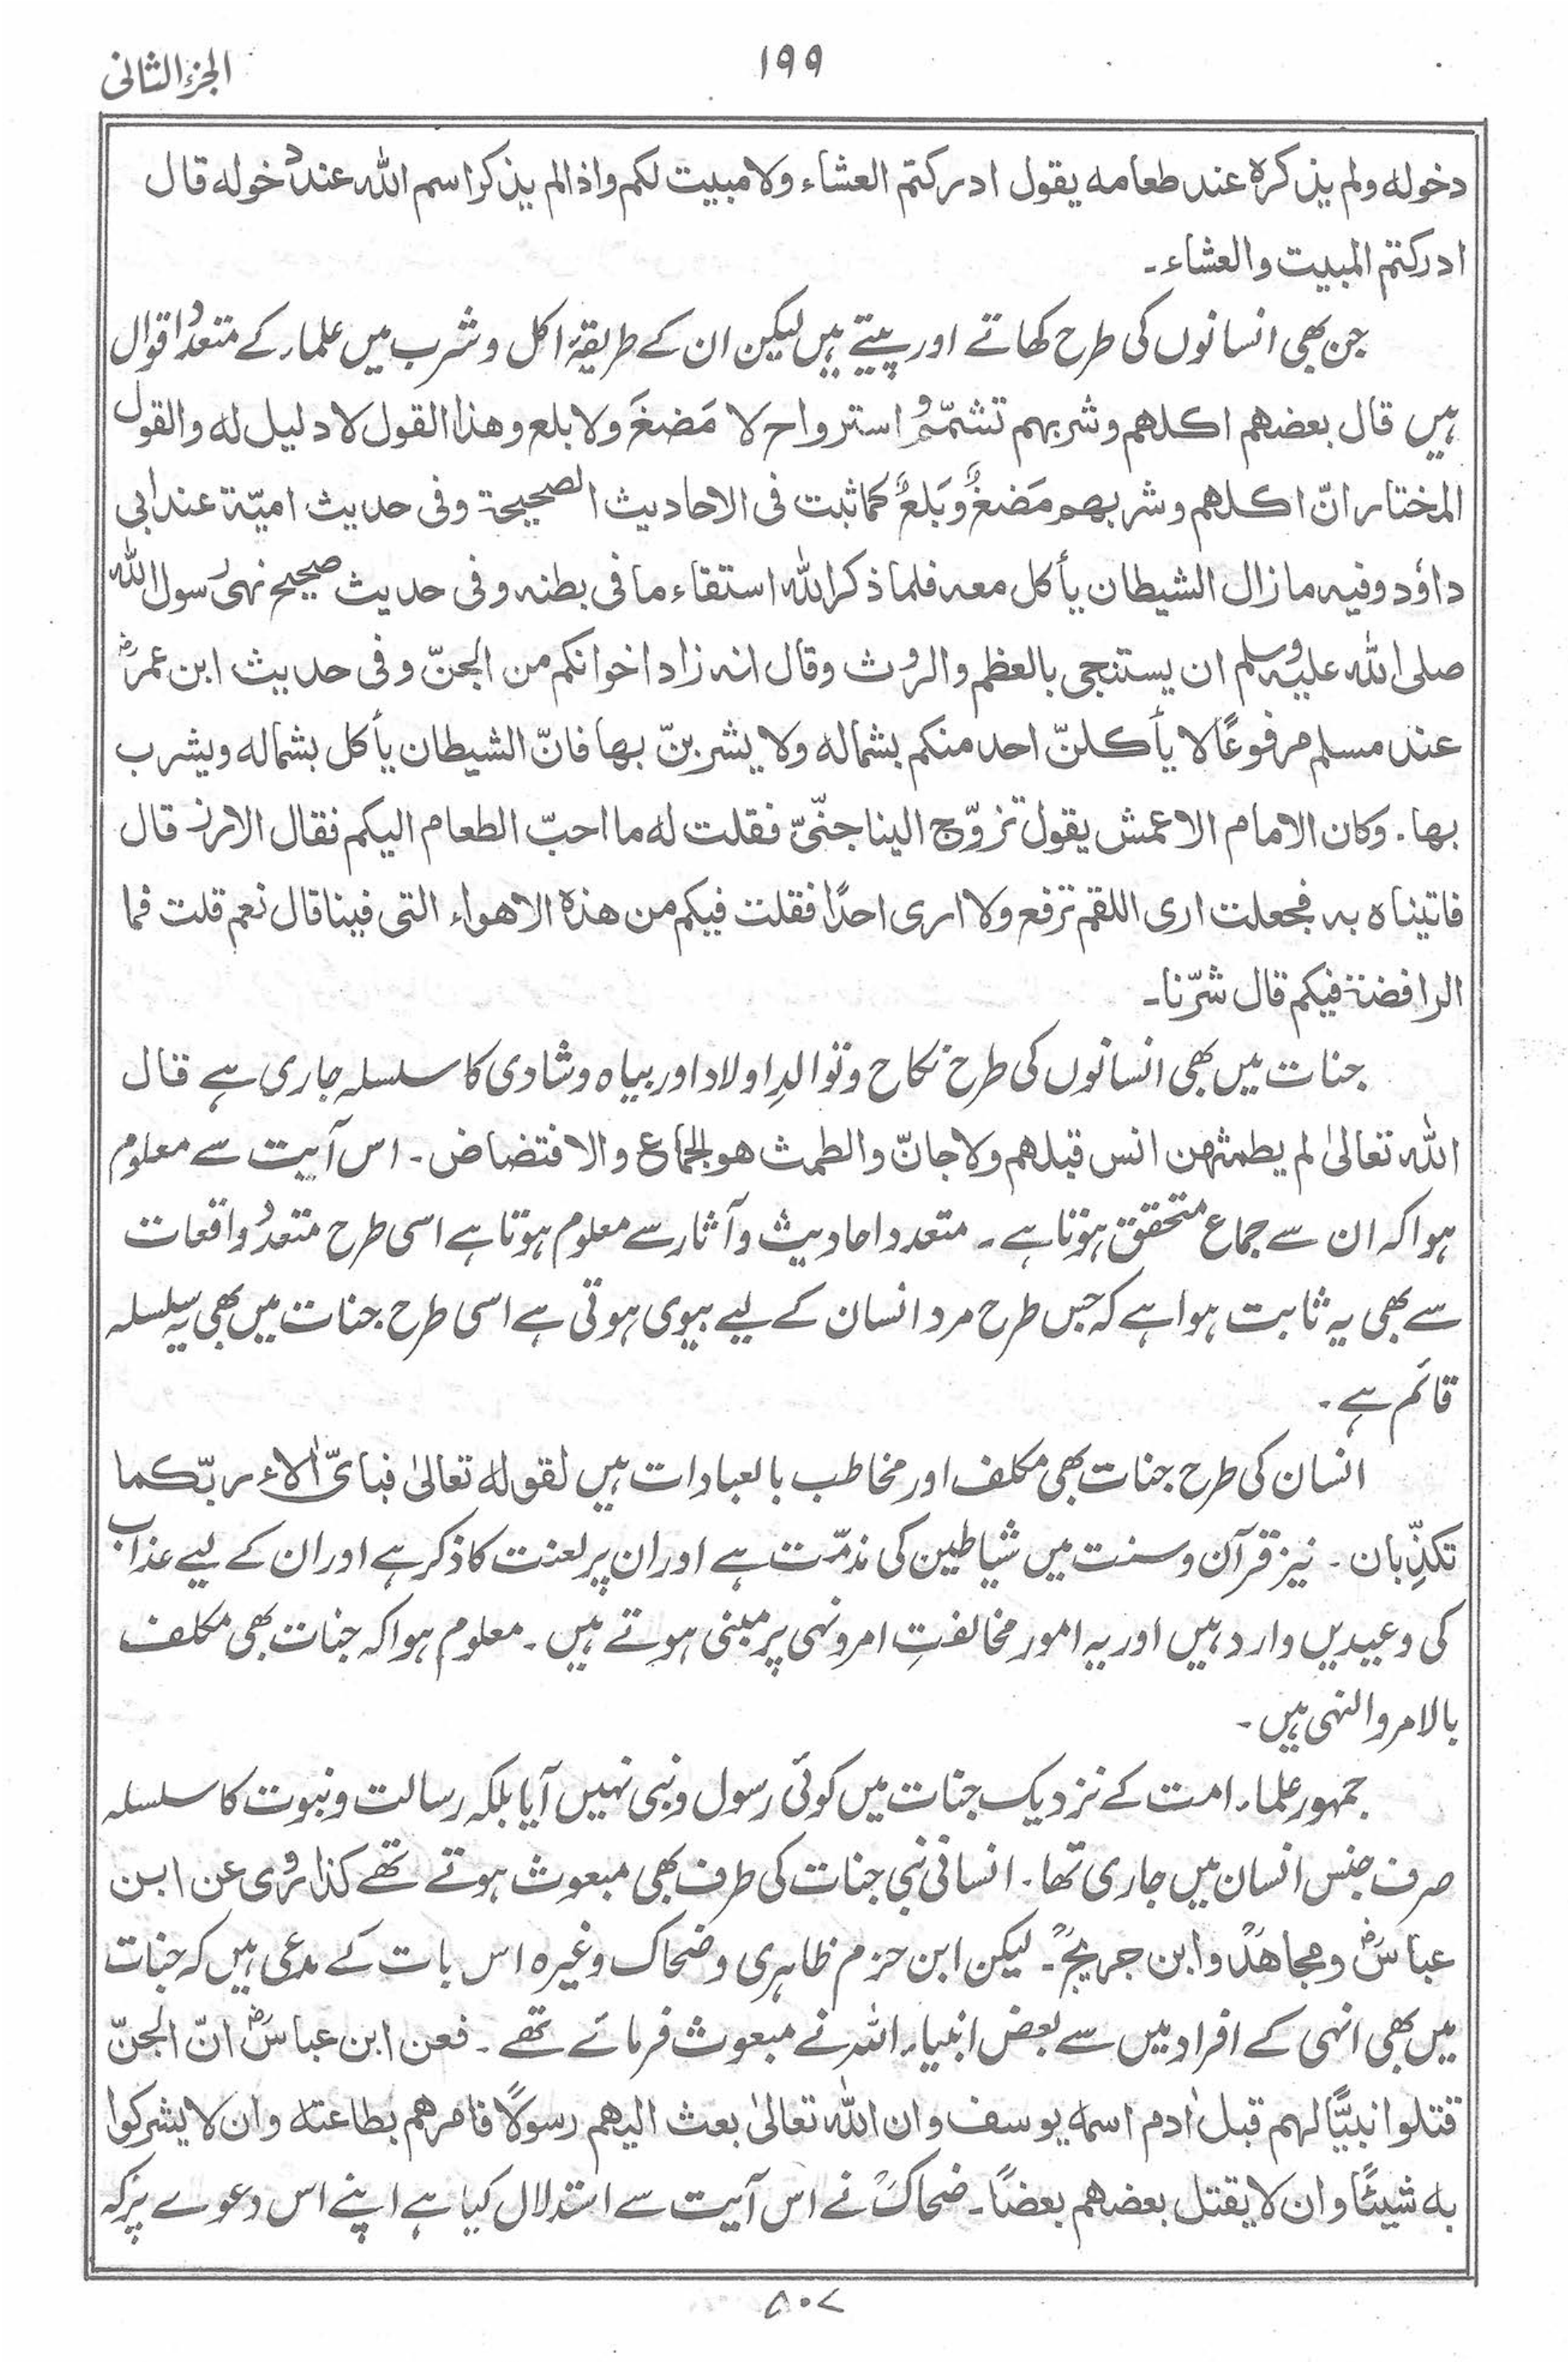 الجزء الثانی
۱۹۹
دخولہ ولم یذکرہ عند طعامہ یقول ادرکتم العشاء ولا مبیت لکم واذا لم یذکر اسم اللہ عند دخولہ قال
ادرکتم المبیت والعشاء۔
جن بھی انسانوں کی طرح کھاتے اور پیتے ہیں لیکن ان کے طریقۂ اکل و شرب میں علماء کے متعدد اقوال
ہیں قال بعضھم اکلھم وشربھم تشمّمٌ واسترواح لا مَضغَ ولا بلع وھذا القول لا دلیل لہ والقول
المختار انّ اکلھم وشربھم مَضغٌ وبَلعٌ کما ثبت فی الاحادیث الصحیحۃ وفی حدیث امیّۃ عند ابی
داؤد وفیہ ما زال الشیطان یأکل معہ فلما ذکر اللہ استقاء ما فی بطنہ وفی حدیث صحیح نہیٰ رسول اللہ
صلی اللہ علیہ وسلم ان یستنجی بالعظم والروث وقال انہ زاد اخوانکم من الجنّ وفی حدیث ابن عمرؓ
عند مسلم مرفوعًا لا یأکلنّ احد منکم بشمالہ ولا یشربنّ بھا فانّ الشیطان یأکل بشمالہ ویشرب
بھا۔ وکان الامام الاعمش یقول تزوّج الینا جنّیّ فقلت لہ ما احبّ الطعام الیکم فقال الارز قال
فاتیناہ بہ فجعلت اری اللقم ترفع ولا اری احدًا فقلت فیکم من ھذہ الاھواء التی فینا قال نعم قلت فما
الرافضۃ فیکم قال شرّنا۔
جنات میں بھی انسانوں کی طرح نکاح و توالدِ اولاد اور بیاہ و شادی کا سلسلہ جاری ہے قال
اللہ تعالیٰ لم یطمثھن انس قبلھم ولا جانّ والطمث ھو الجماع والافتضاض۔ اس آیت سے معلوم
ہوا کہ ان سے جماع متحقق ہوتا ہے۔ متعدد احادیث و آثار سے معلوم ہوتا ہے اسی طرح متعدد واقعات
سے بھی یہ ثابت ہوا ہے کہ جس طرح مرد انسان کے لیے بیوی ہوتی ہے اسی طرح جنات میں بھی یہ سلسلہ
قائم ہے۔
انسان کی طرح جنات بھی مکلف اور مخاطب بالعبادات ہیں لقولہ تعالیٰ فبایّ اٰلاء ربّکما
تکذِّبان۔ نیز قرآن و سنت میں شیاطین کی مذمّت ہے اور ان پر لعنت کا ذکر ہے اور ان کے لیے عذاب
کی وعیدیں وارد ہیں اور یہ امور مخالفتِ امر و نہی پر مبنی ہوتے ہیں۔ معلوم ہوا کہ جنات بھی مکلف
بالامر والنہی ہیں۔
جمہور علماء امت کے نزدیک جنات میں کوئی رسول و نبی نہیں آیا بلکہ رسالت و نبوت کا سلسلہ
صرف جنس انسان میں جاری تھا۔ انسانی نبی جنات کی طرف بھی مبعوث ہوتے تھے کذا رُوی عن ابن
عباسؓ ومجاھدؒ وابن جریجؒ۔ لیکن ابن حزم ظاہری و ضحاک وغیرہ اس بات کے مدعی ہیں کہ جنات
میں بھی انہی کے افراد میں سے بعض انبیاء اللہ نے مبعوث فرمائے تھے۔ فعن ابن عباسؓ انّ الجنّ
قتلوا نبیًّا لھم قبل اٰدم اسمہ یوسف وان اللہ تعالیٰ بعث الیھم رسولًا فامرھم بطاعتہ وان لا یشرکوا
بہ شیئًا وان لا یقتل بعضھم بعضًا۔ ضحاکؒ نے اس آیت سے استدلال کیا ہے اپنے اس دعوے پر کہ
۵۰۷